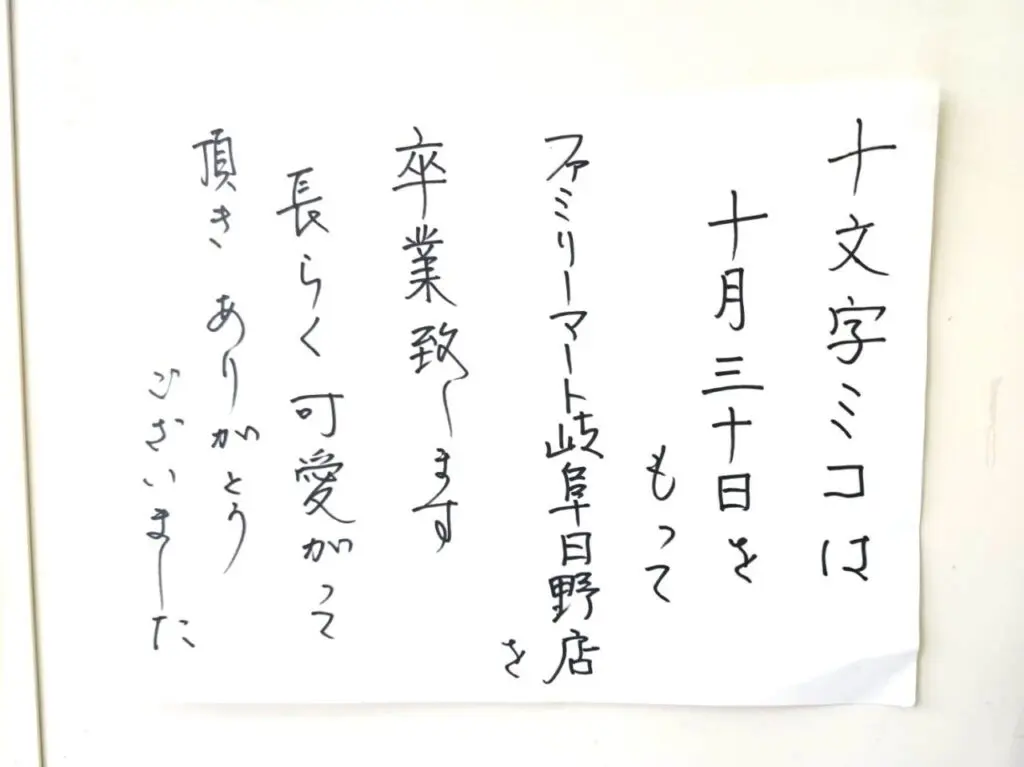 十文字ミコは
十月三十日を
もって
ファミリーマート岐阜日野店
を
卒業致します
長らく可愛がって
頂き ありがとう
ございました